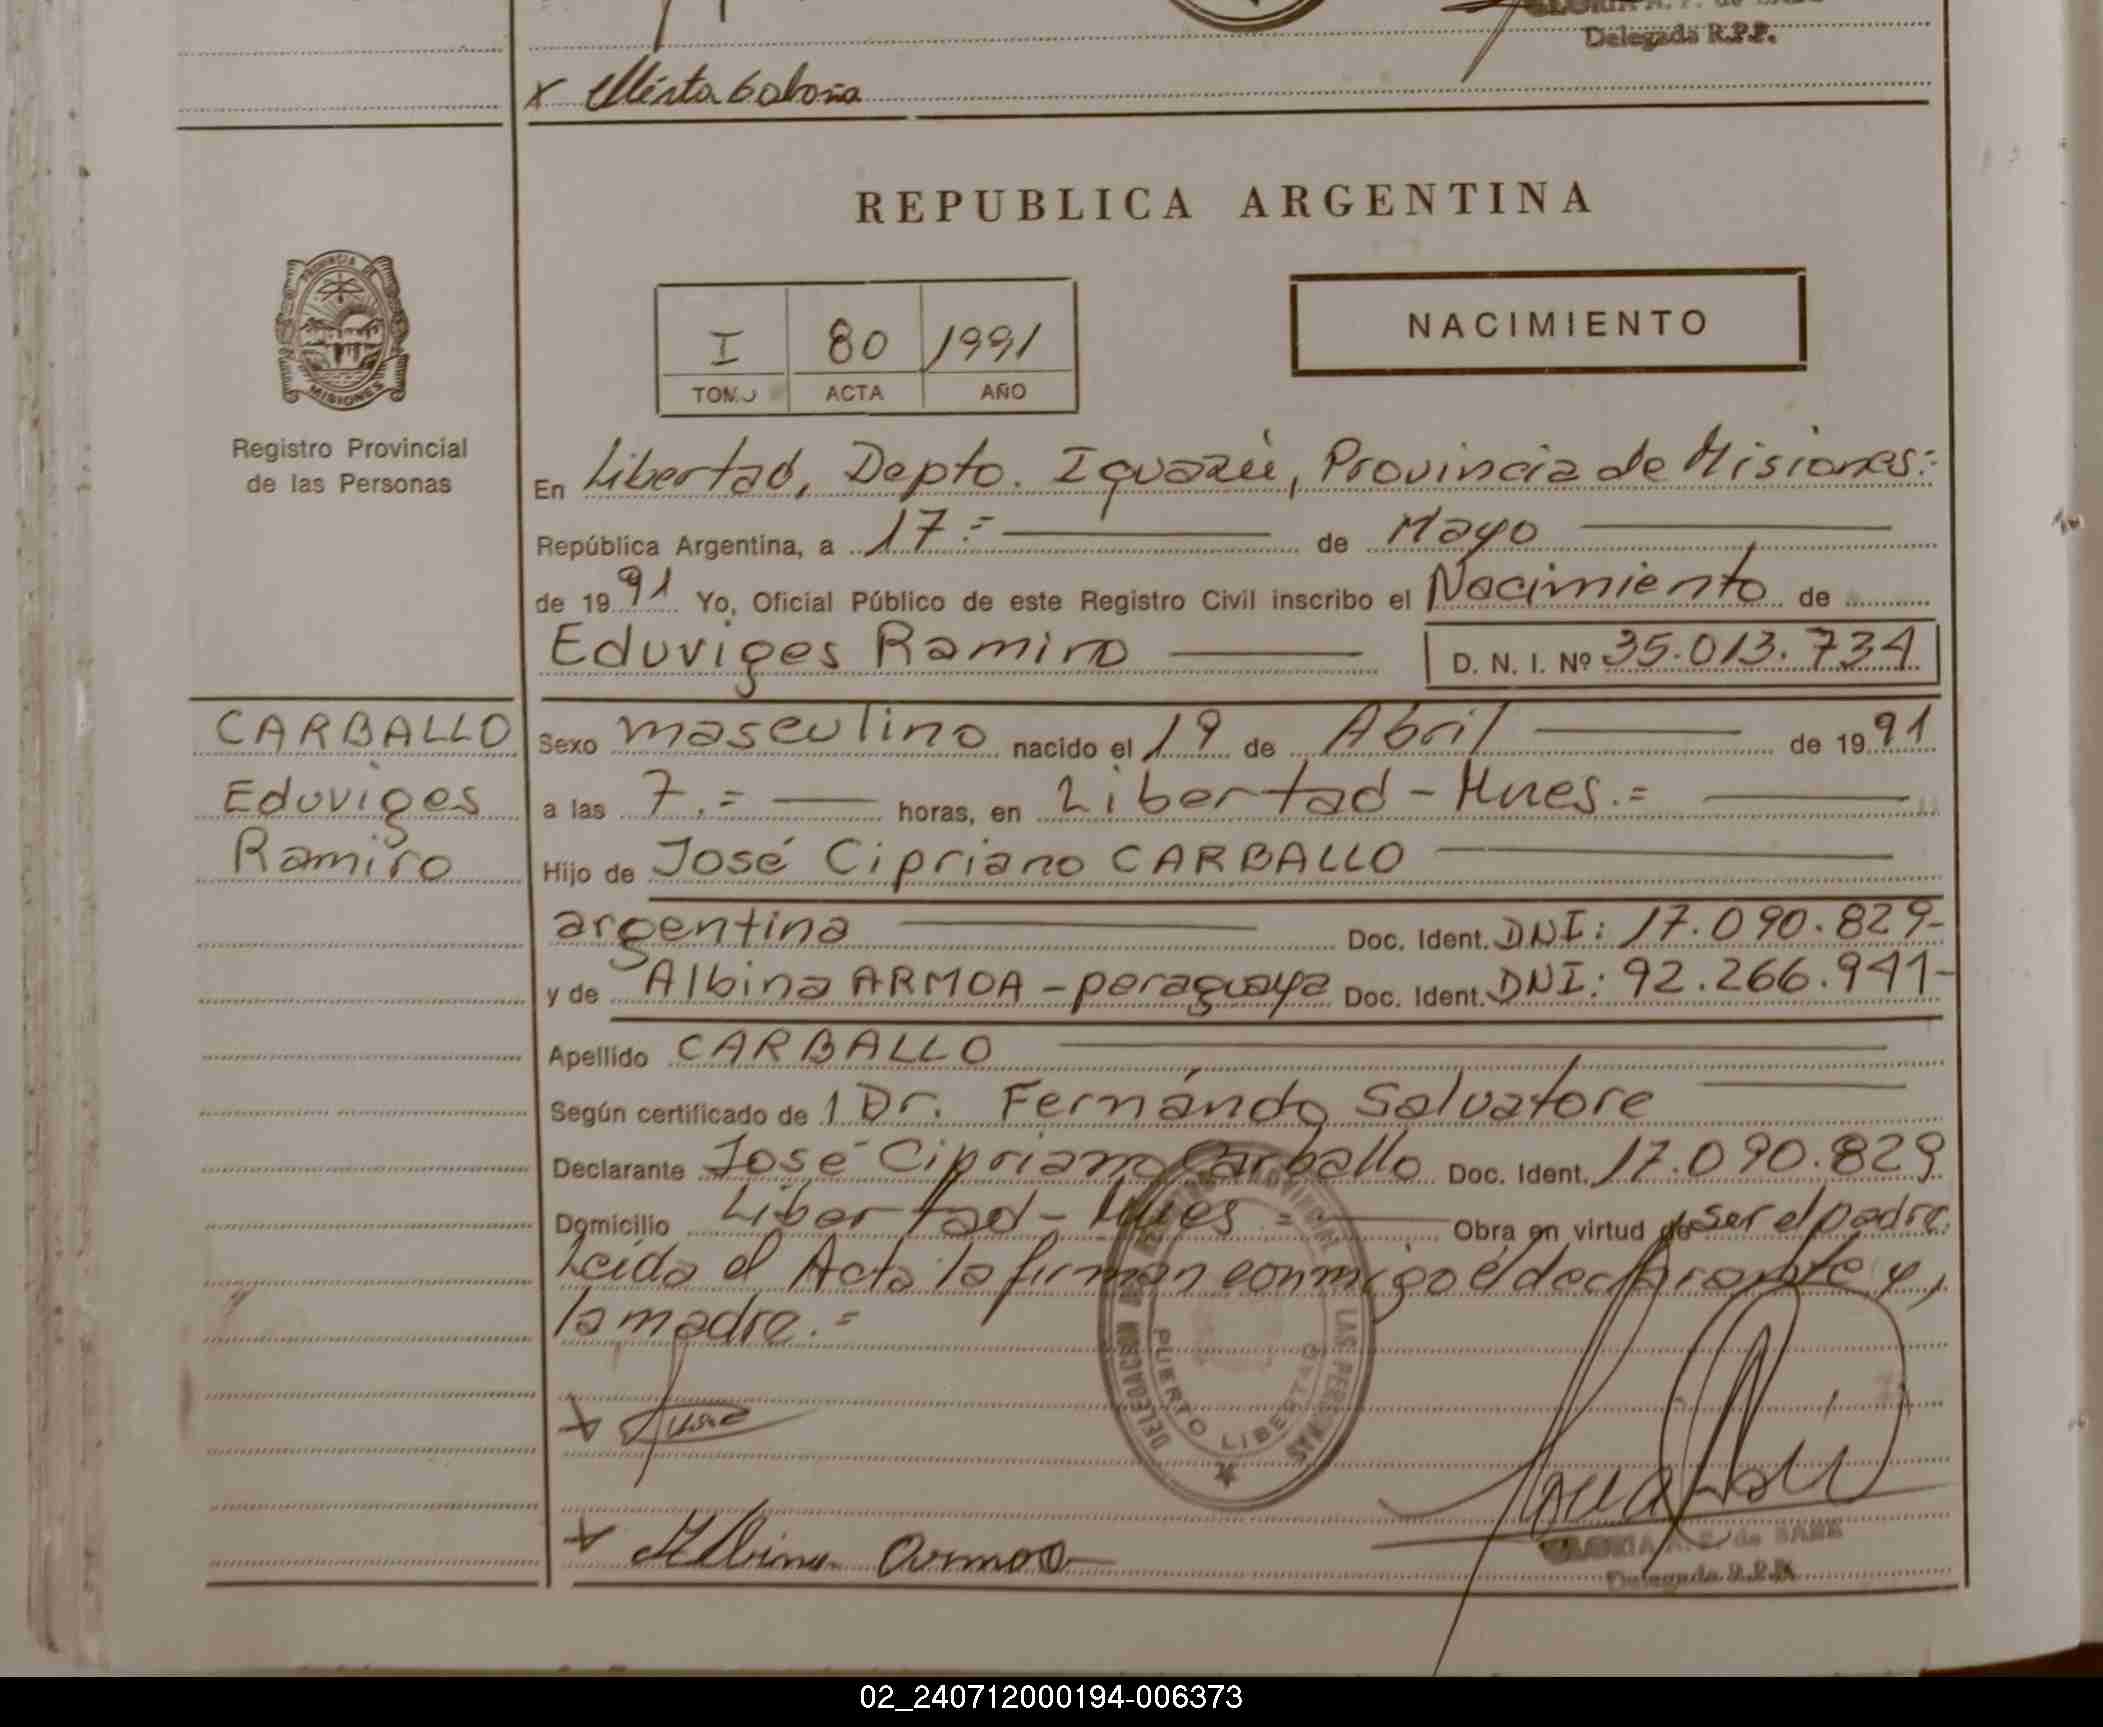 Delegada R.P.P.
x Mirta
REPUBLICA ARGENTINA
PROVINCIA DE
MISIONES
Registro Provincial
de las Personas
I 80 1991
TOMO ACTA AÑO
NACIMIENTO
En Libertad, Depto. Iguazú, Provincia de Misiones:-
República Argentina, a 17.= de Mayo
de 1991 Yo, Oficial Público de este Registro Civil inscribo el Nacimiento de
Eduviges Ramiro D. N. I. Nº 35.013.734
CARBALLO
Eduviges
Ramiro
Sexo masculino nacido el 19 de Abril de 1991
a las 7.= horas, en Libertad - Mnes.=
Hijo de José Cipriano CARBALLO
argentina Doc. Ident. DNI: 17.090.829-
y de Albina ARMOA - paraguaya Doc. Ident. DNI: 92.266.941-
Apellido CARBALLO
Según certificado de 1 Dr. Fernándo Salvatore
Declarante José Cipriano Carballo Doc. Ident. 17.090.829
Domicilio Libertad - Mnes = Obra en virtud de ser el padre.
Leida el Acta la firman conmigo el declarante y,
la madre.=
PUERTO LIBERTAD
x
x Albina Armoa
GLORIA de BARE
Delegada R.P.P.
02_240712000194-006373